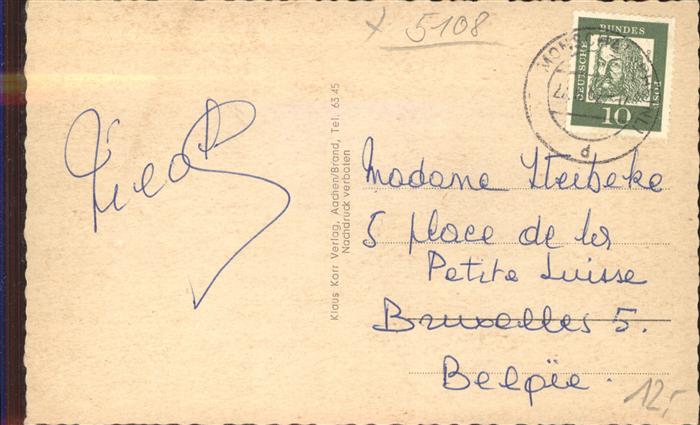 5108
DEUTSCHE BUNDES POST
10
MONSCHAU
d
Klaus Korr Verlag, Aachen/Brand, Tel. 63 45
Nachdruck verboten
Madame Steibeke
5 place de la
Petite Suisse
Bruxelles 5.
Belgïe.
12,-